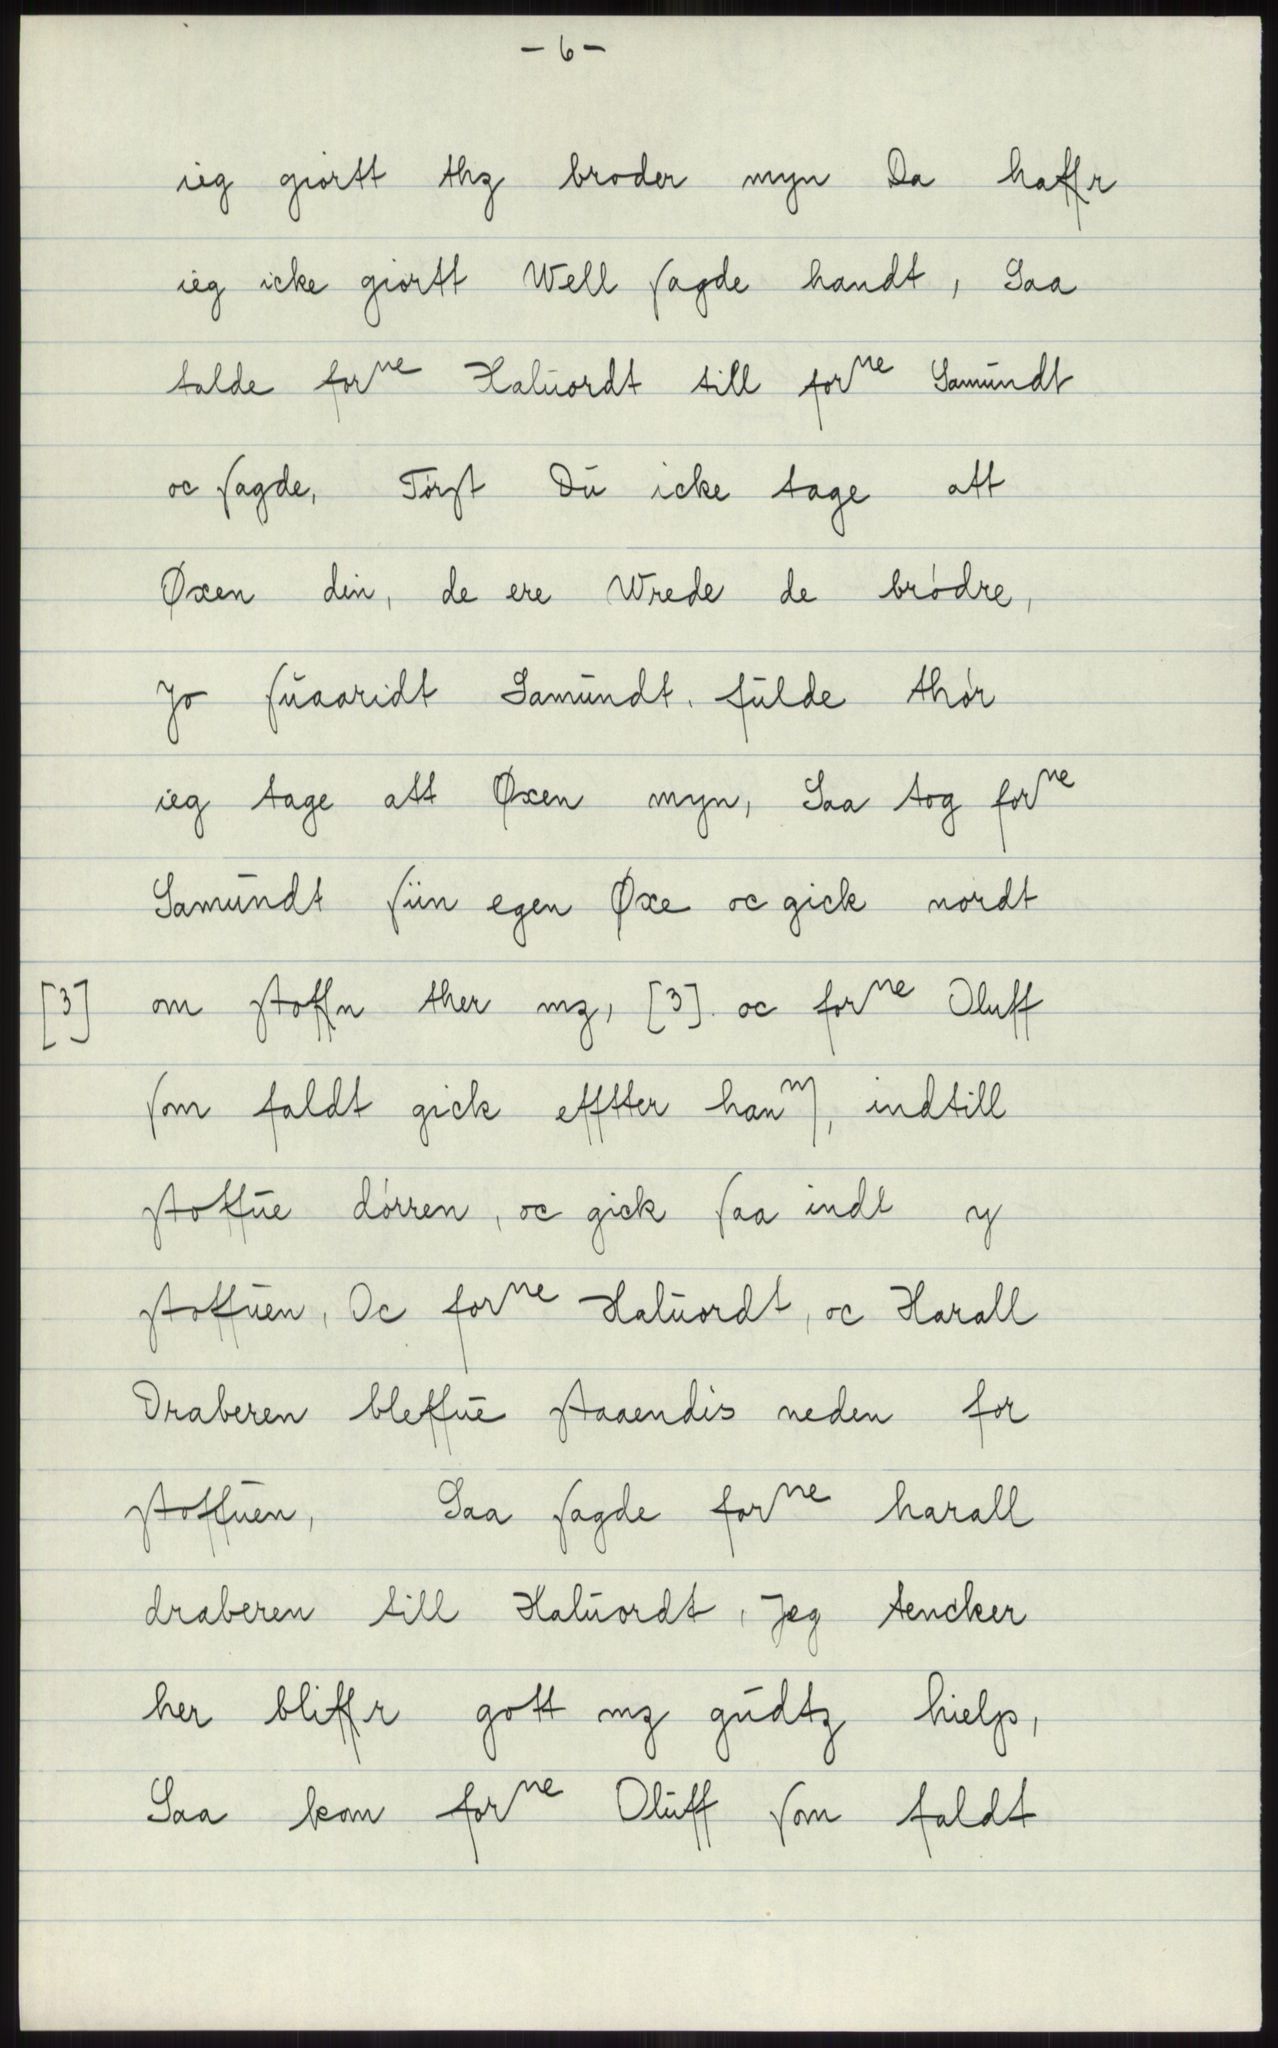 - 6 -
ieg giortt thz broder myn Da haffr
ieg icke giortt Well sagde handt, Saa
talde forne Haluordt till forne Samundt
oc sagde, Tørst Du icke tage att
Øxen din, de ere Wrede de brødre,
Jo suaaridt Samundt. fulde thør
ieg tage att Øxen myn, Saa tog forne
Samundt siin egen Øxe oc gick nordt
[3] om stoffn ther mz, [3]. oc forne Oluff
som faldt gick efftter hanm, indtill
stoffue dørren, oc gick saa indt y
stoffuen, Oc forne Haluordt, oc Harall
Draberen bleffue staaendis neden for
stoffuen, Saa sagde forne harall
draberen till Haluordt, Jeg tencker
her bliffr gott mz gudtz hielp,
Saa kom forne Oluff som faldt